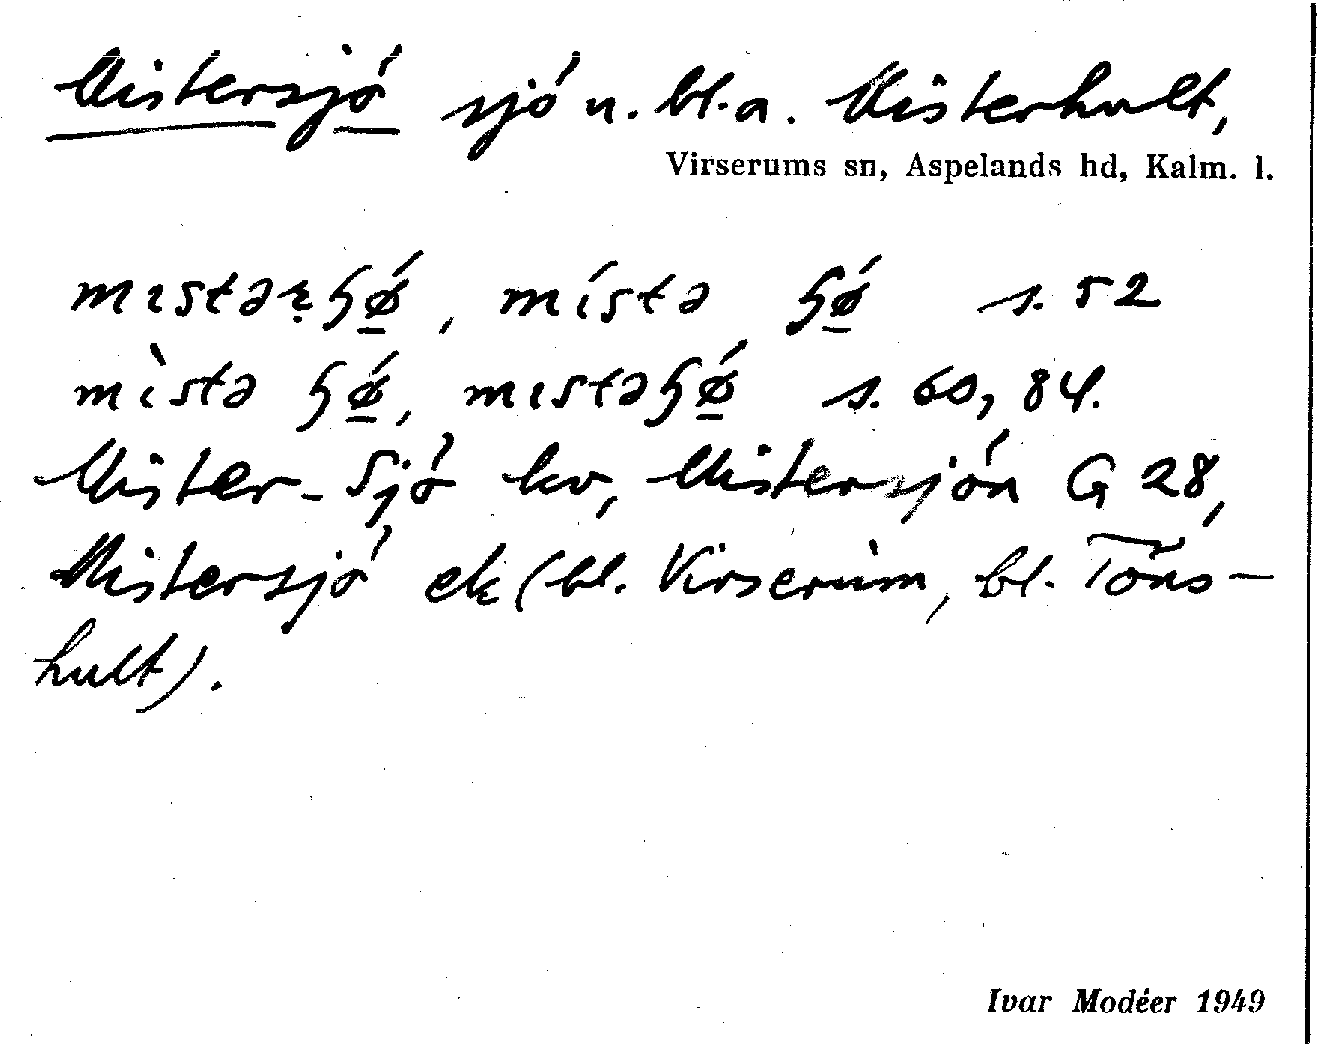 Mistersjö sjö n. bl. a. Misterhult,
Virserums sn, Aspelands hd, Kalm. l.
mıstəɽɧǿ̲, místə ɧǿ̲ s. 52
mìstə ɧǿ̲, mıstəɧǿ̲ s. 60, 84.
Mister-Sjö kv, Mistersjön G 28,
Mistersjö ek (bl. Virserum, bl. Töns-
hult).
Ivar Modéer 1949